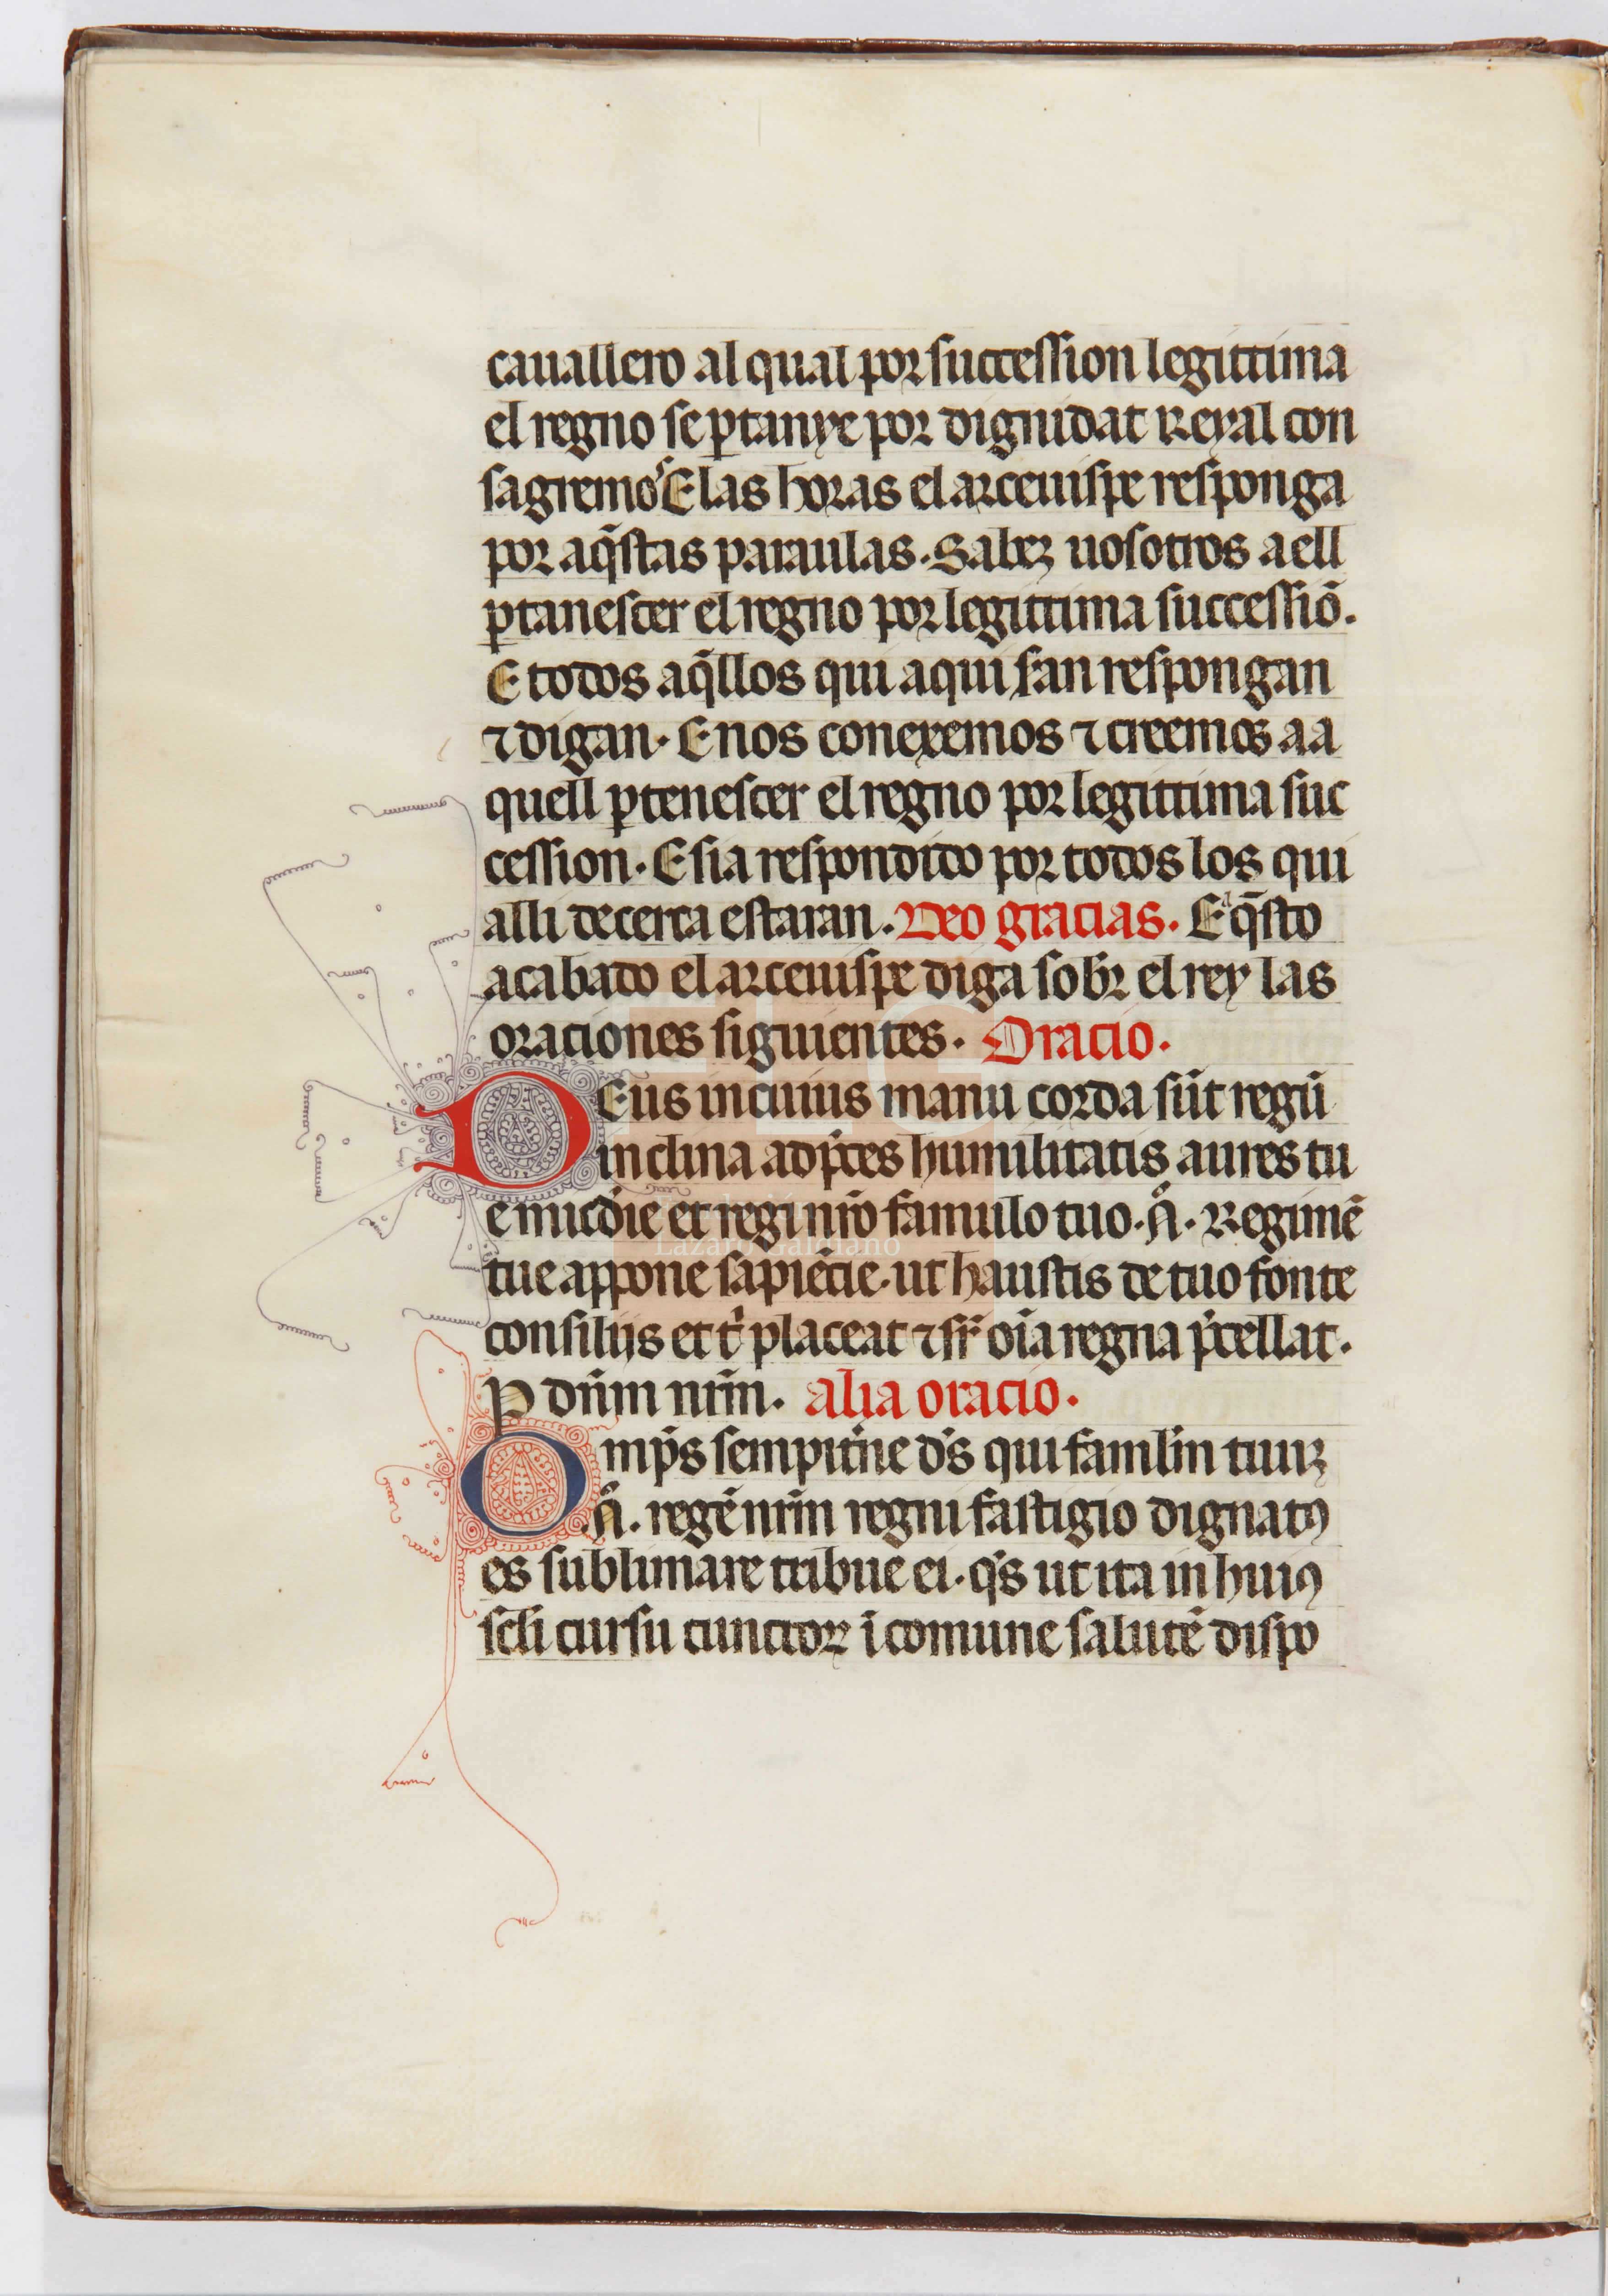 cauallero al qual por succession legittima
el regno se ꝑtanye por dignidat Reyal con
sagremos E las horas el arceuispe responga
por aq̃stas paraulas. Sabez uosotros a ell
ꝑtanescer el regno por legittima successiõ.
E todos aq̃llos qui aqui san respongan
⁊ digan. E nos conexemos ⁊ creemos a a
quell ꝑtenescer el regno por legittima suc
cession. E sia respondido por todos los qui
alli decerca estaran. Deo gracias. E aq̃sto
acabado el arceuispe diga sobr̃ el rey las
oraciones siguientes. Oracio.
DEus in cuius manu corda sũt regũ
inclina ad p̃ces humilitatis aures tu
e mĩcdie et regi nr̃o famulo tuo. N̊. Regimẽ
tue appone sapiẽcie. ut haustis de tuo fonte
consilijs et tⁱ placeat ⁊ sr̃ oĩa regna p̃cellat.
P dñm nrm̃. alia oracio.
Omp̃s sempit̃ne ds̃ qui famlm̃ tuuꝫ
N̊. regẽ nrm̃ regni fastigio dignatꝯ
es sublimare tribue ei. qs̃ ut ita in huiꝯ
sc̃li cursu cunctoꝝ ĩ comune salutẽ dispo
Lázaro Galdiano